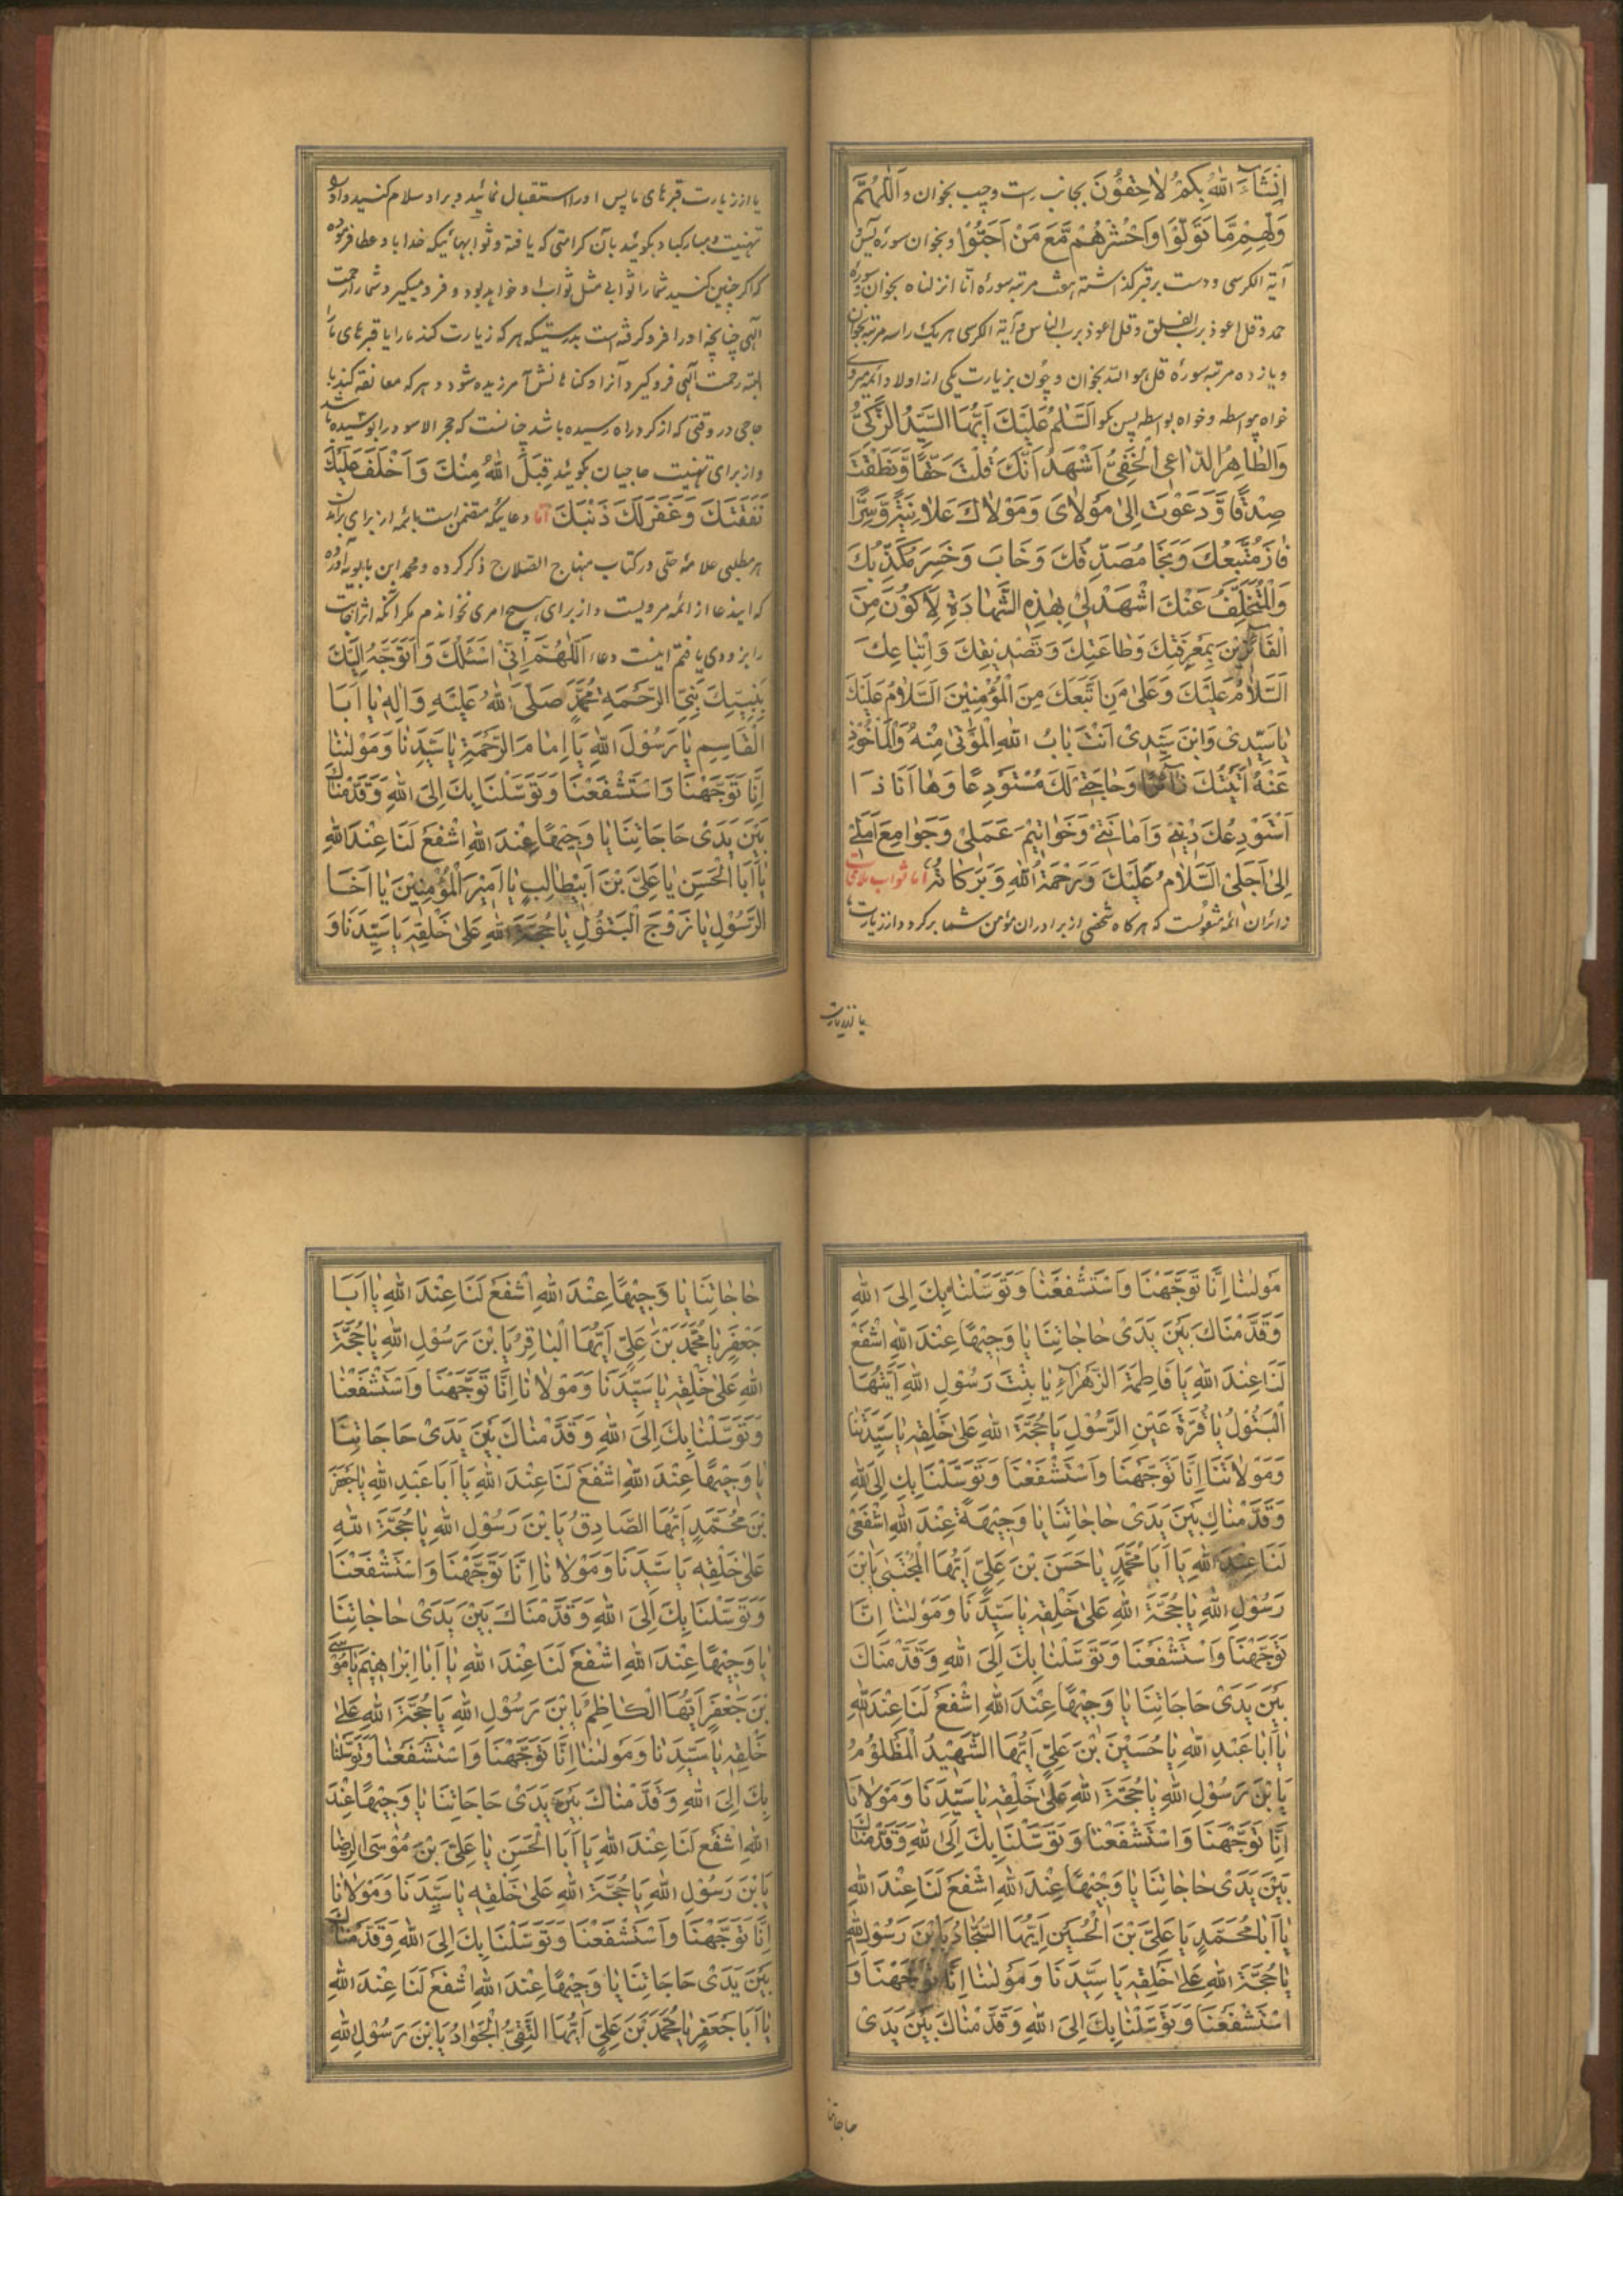 اِنْشَآءَ اللّٰهُ بِكُمْ لاٰحِقُوْنَ بجانب راست و چپ بخوان و اَللّٰهُمَّ
وَلِّهِمْ مَّا تَوَلَّوْا وَاحْشُرْهُمْ مَّعَ مَنْ اَحَبُّوْا و بخوان سوره يس
آية الكرسى و دست بر قبر گذاشته هفت مرتبه سورهٔ انّا انزلناه بخوان و سورهٔ
حمد و قل اعوذ برب الفلق و قل اعوذ برب الناس و آية الكرسى هر يك را سه مرتبه بخوان
و يازده مرتبه سورهٔ قل هو الله بخوان و چون بزيارت يكى از اولاد ائمه ميروى
خواه بواسطه و خواه بواسطه پس بگو اَلسَّلٰمُ عَلَيْكَ اَيُّهَا السَّيِّدُ الزَّكِىُّ
وَالطّٰاهِرُ الدّٰاعِى الْخَفِىُّ اَشْهَدُ اَنَّكَ قُلْتَ حَقًّا وَّنَطَقْتَ
صِدْقًا وَّدَعَوْتَ اِلىٰ مَوْلاٰىَ وَمَوْلاٰكَ عَلاٰنِيَةً وَّسِرًّا
فٰازَ مُتَّبِعُكَ وَنَجٰا مُصَدِّقُكَ وَخَابَ وَخَسِرَ مُكَذِّبُكَ
وَالْمُتَخَلِّفُ عَنْكَ اشْهَدْ لِىْ بِهٰذِهِ الشَّهٰادَةِ لِاَكُوْنَ مِنَ
الْفَآئِزِيْنَ بِمَعْرِفَتِكَ وَطٰاعَتِكَ وَتَصْدِيْقِكَ وَاتِّبٰاعِكَ
اَلسَّلاٰمُ عَلَيْكَ وَعَلىٰ مَنِ اتَّبَعَكَ مِنَ الْمُؤْمِنِيْنَ اَلسَّلاٰمُ عَلَيْكَ
يٰا سَيِّدِىْ وَابْنَ سَيِّدِىْ اَنْتَ بٰابُ اللّٰهِ الْمُؤْتىٰ مِنْهُ وَالْمَاْخُوْذُ
عَنْهُ اَتَيْتُكَ زٰآئِرًا وَحٰاجَتِىْ لَكَ مُسْتَوْدِعًا وَهٰا اَنَا ذَا
اَسْتَوْدِعُكَ دِيْنِىْ وَاَمٰانَتِىْ وَخَوٰاتِيْمَ عَمَلِىْ وَجَوٰامِعَ اَمَلِىْ
اِلىٰ اَجَلِىْ اَلسَّلاٰمُ عَلَيْكَ وَرَحْمَةُ اللّٰهِ وَبَرَكَاتُهُ اما ثواب ملاقات
زائران ائمه منقولست كه هرگاه شخصى از برادران مؤمن شما برگردد از زيارت ما
يا از زيارت
يا از زيارت قبرهاى ما پس او را استقبال نمائيد و بر او سلام كنيد و او را
تهنيت و مباركباد بگوئيد بآن كرامتى كه يافته و ثوابهائيكه خدا باو عطا فرموده
كه اگر چنين كنيد شما را ثوابى مثل ثواب او خواهد بود و فرو ميگيرد شما را رحمت
الهى چنانچه او را فرو گرفته است بدرستيكه هر كه زيارت كند ما را يا قبرهاى ما را
البته رحمت الهى فرو گيرد او را و گناهانش آمرزيده شود و هر كه معانقه كند با
حاجى در وقتى كه از گرد راه رسيده باشد چنانست كه حجر الاسود را بوسيده باشد
و از براى تهنيت حاجيان بگوئيد قَبِلَ اللّٰهُ مِنْكَ وَاَخْلَفَ عَلَيْكَ
نَفَقَتَكَ وَغَفَرَ لَكَ ذَنْبَكَ اما دعائيكه متضمن است بائمه از براى برآمدن
هر مطلبى علامهٔ حلى در كتاب منهاج الصلاح ذكر كرده و محمد ابن بابويه آورده
كه ايندعا از ائمه مرويست و از براى هيچ امرى نخواندم مگر آنكه اثر اجابت
را بزودى يافتم اينست دعاء اَللّٰهُمَّ اِنِّىْ اَسْئَلُكَ وَاَتَوَجَّهُ اِلَيْكَ
بِنَبِيِّكَ نَبِىِّ الرَّحْمَةِ مُحَمَّدٍ صَلَّى اللّٰهُ عَلَيْهِ وَاٰلِهٖ يٰا اَبَا
الْقَاسِمِ يٰا رَسُوْلَ اللّٰهِ يٰا اِمٰامَ الرَّحْمَةِ يٰا سَيِّدَنٰا وَمَوْلٰينٰا
اِنَّا تَوَجَّهْنَا وَاسْتَشْفَعْنَا وَتَوَسَّلْنَا بِكَ اِلَى اللّٰهِ وَقَدَّمْنٰاكَ
بَيْنَ يَدَىْ حَاجَاتِنَا يٰا وَجِيْهًا عِنْدَ اللّٰهِ اشْفَعْ لَنَا عِنْدَ اللّٰهِ
يٰا اَبَا الْحَسَنِ يٰا عَلِىَّ بْنَ اَبِيْطَالِبٍ يٰا اَمِيْرَ الْمُؤْمِنِيْنَ يٰا اَخَا
الرَّسُوْلِ يٰا زَوْجَ الْبَتُوْلِ يٰا حُجَّةَ اللّٰهِ عَلىٰ خَلْقِهٖ يٰا سَيِّدَنَا وَ
مَوْلٰينٰا اِنَّا تَوَجَّهْنَا وَاسْتَشْفَعْنٰا وَتَوَسَّلْنٰا بِكَ اِلَى اللّٰهِ
وَقَدَّمْنَاكَ بَيْنَ يَدَىْ حٰاجٰاتِنَا يٰا وَجِيْهًا عِنْدَ اللّٰهِ اشْفَعْ
لَنَا عِنْدَ اللّٰهِ يَا فَاطِمَةَ الزَّهْرَآءِ يٰا بِنْتَ رَسُوْلِ اللّٰهِ اَيَّتُهَا
الْبَتُوْلُ يٰا قُرَّةَ عَيْنِ الرَّسُوْلِ يٰا حُجَّةَ اللّٰهِ عَلىٰ خَلْقِهٖ يٰا سَيِّدَتَنٰا
وَمَوْلاٰتَنَا اِنَّا تَوَجَّهْنَا وَاسْتَشْفَعْنَا وَتَوَسَّلْنَا بِكِ اِلَى اللّٰهِ
وَقَدَّمْنٰاكِ بَيْنَ يَدَىْ حٰاجٰاتِنَا يٰا وَجِيْهَةً عِنْدَ اللّٰهِ اشْفَعِىْ
لَنَا عِنْدَ اللّٰهِ يٰا اَبَا مُحَمَّدٍ يٰا حَسَنَ بْنَ عَلِىٍّ اَيُّهَا الْمُجْتَبىٰ يَا بْنَ
رَسُوْلِ اللّٰهِ يٰا حُجَّةَ اللّٰهِ عَلىٰ خَلْقِهٖ يٰا سَيِّدَنَا وَمَوْلٰينٰا اِنَّا
تَوَجَّهْنَا وَاسْتَشْفَعْنَا وَتَوَسَّلْنٰا بِكَ اِلَى اللّٰهِ وَقَدَّمْنَاكَ
بَيْنَ يَدَىْ حَاجَاتِنَا يٰا وَجِيْهًا عِنْدَ اللّٰهِ اشْفَعْ لَنَا عِنْدَ اللّٰهِ
يٰا اَبٰا عَبْدِ اللّٰهِ يٰا حُسَيْنَ بْنَ عَلِىٍّ اَيُّهَا الشَّهِيْدُ الْمَظْلُوْمُ
يَا بْنَ رَسُوْلِ اللّٰهِ يٰا حُجَّةَ اللّٰهِ عَلىٰ خَلْقِهٖ يٰا سَيِّدَنَا وَمَوْلاٰنَا
اِنَّا تَوَجَّهْنَا وَاسْتَشْفَعْنٰا وَتَوَسَّلْنَا بِكَ اِلَى اللّٰهِ وَقَدَّمْنٰاكَ
بَيْنَ يَدَىْ حٰاجٰاتِنَا يٰا وَجِيْهًا عِنْدَ اللّٰهِ اشْفَعْ لَنَا عِنْدَ اللّٰهِ
يٰا اَبٰا مُحَمَّدٍ يٰا عَلِىَّ بْنَ الْحُسَيْنِ اَيُّهَا السَّجّٰادُ يَا بْنَ رَسُوْلِ اللّٰهِ
يٰا حُجَّةَ اللّٰهِ عَلىٰ خَلْقِهٖ يٰا سَيِّدَنَا وَمَوْلٰينٰا اِنَّا تَوَجَّهْنَا وَ
اسْتَشْفَعْنَا وَتَوَسَّلْنٰا بِكَ اِلَى اللّٰهِ وَقَدَّمْنَاكَ بَيْنَ يَدَىْ
حاجاتنا
حٰاجٰاتِنَا يٰا وَجِيْهًا عِنْدَ اللّٰهِ اشْفَعْ لَنَا عِنْدَ اللّٰهِ يٰا اَبَا
جَعْفَرٍ يٰا مُحَمَّدَ بْنَ عَلِىٍّ اَيُّهَا الْبٰاقِرُ يَا بْنَ رَسُوْلِ اللّٰهِ يٰا حُجَّةَ
اللّٰهِ عَلىٰ خَلْقِهٖ يٰا سَيِّدَنَا وَمَوْلاٰنَا اِنَّا تَوَجَّهْنَا وَاسْتَشْفَعْنٰا
وَتَوَسَّلْنٰا بِكَ اِلَى اللّٰهِ وَقَدَّمْنَاكَ بَيْنَ يَدَىْ حَاجَاتِنَا
يٰا وَجِيْهًا عِنْدَ اللّٰهِ اشْفَعْ لَنَا عِنْدَ اللّٰهِ يٰا اَبَا عَبْدِ اللّٰهِ يٰا جَعْفَرَ
بْنَ مُحَمَّدٍ اَيُّهَا الصَّادِقُ يَا بْنَ رَسُوْلِ اللّٰهِ يٰا حُجَّةَ اللّٰهِ
عَلىٰ خَلْقِهٖ يٰا سَيِّدَنَا وَمَوْلاٰنَا اِنَّا تَوَجَّهْنَا وَاسْتَشْفَعْنَا
وَتَوَسَّلْنَا بِكَ اِلَى اللّٰهِ وَقَدَّمْنَاكَ بَيْنَ يَدَىْ حٰاجٰاتِنَا
يٰا وَجِيْهًا عِنْدَ اللّٰهِ اشْفَعْ لَنَا عِنْدَ اللّٰهِ يٰا اَبٰا اِبْرَاهِيْمَ يٰا مُوْسَى
بْنَ جَعْفَرٍ اَيُّهَا الْكَاظِمُ يَا بْنَ رَسُوْلِ اللّٰهِ يٰا حُجَّةَ اللّٰهِ عَلىٰ
خَلْقِهٖ يٰا سَيِّدَنٰا وَمَوْلٰينٰا اِنَّا تَوَجَّهْنَا وَاسْتَشْفَعْنٰا وَتَوَسَّلْنَا
بِكَ اِلَى اللّٰهِ وَقَدَّمْنٰاكَ بَيْنَ يَدَىْ حَاجَاتِنَا يٰا وَجِيْهًا عِنْدَ
اللّٰهِ اشْفَعْ لَنَا عِنْدَ اللّٰهِ يٰا اَبَا الْحَسَنِ يٰا عَلِىَّ بْنَ مُوْسَى الرِّضٰا
يَا بْنَ رَسُوْلِ اللّٰهِ يٰا حُجَّةَ اللّٰهِ عَلىٰ خَلْقِهٖ يٰا سَيِّدَنَا وَمَوْلاٰنَا
اِنَّا تَوَجَّهْنَا وَاسْتَشْفَعْنَا وَتَوَسَّلْنَا بِكَ اِلَى اللّٰهِ وَقَدَّمْنَاكَ
بَيْنَ يَدَىْ حَاجَاتِنَا يٰا وَجِيْهًا عِنْدَ اللّٰهِ اشْفَعْ لَنَا عِنْدَ اللّٰهِ
يٰا اَبَا جَعْفَرٍ يٰا مُحَمَّدَ بْنَ عَلِىٍّ اَيُّهَا التَّقِىُّ الْجَوَادُ يَا بْنَ رَسُوْلِ اللّٰهِ